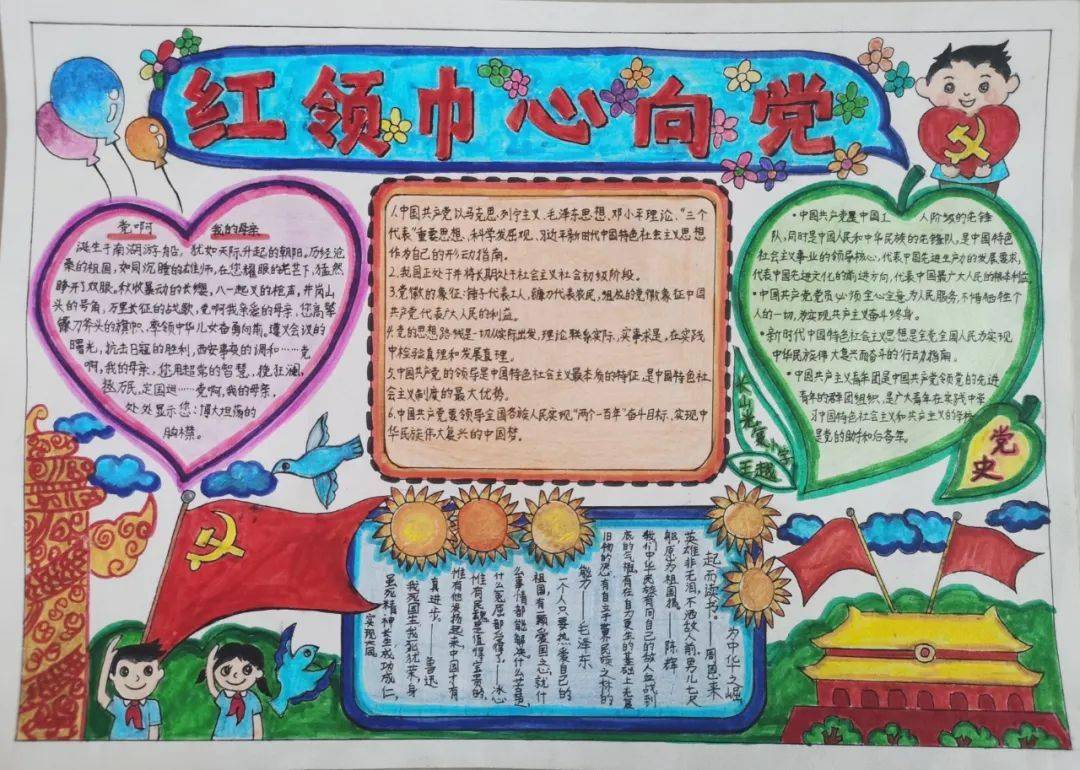 红领巾心向党
党啊 我的母亲
诞生于南湖游船，犹如天际升起的朝阳。历经沧
桑的祖国，如同沉睡的雄师，在您耀眼的光芒下，猛然
睁开了双眼。秋收暴动的长缨，八一起义的枪声，井岗山
头的号角，万里长征的战歌，党啊我亲爱的母亲，您高擎
镰刀斧头的旗帜，牵领中华儿女奋勇向前，遵义会议的
曙光，抗击日寇的胜利，西安事变的调和……党
啊，我的母亲，您用超常的智慧，挽狂澜，
拯万民，定国运……党啊，我的母亲，
处处显示您：博大坦荡的
胸襟。
1.中国共产党以马克思、列宁主义、毛泽东思想、邓小平理论、“三个
代表”重要思想、科学发展观、习近平新时代中国特色社会主义思想
作为自己的行动指南。
2.我国正处于并将长期处于社会主义社会初级阶段。
3.党徽的象征：锤子代表工人，镰刀代表农民，组成的党徽象征中国
共产党代表广大人民的利益。
4.党的思想路线是一切从实际出发，理论联系实际，实事求是，在实践
中检验真理和发展真理。
5.中国共产党的领导是中国特色社会主义最本质的特征，是中国特色社
会主义制度的最大优势。
6.中国共产党要领导全国各族人民实现“两个一百年”奋斗目标，实现中
华民族伟大复兴的中国梦。
•中国共产党是中国工 人阶级的先锋
队，同时是中国人民和中华民族的先锋队，是中国特色
社会主义事业的领导核心，代表中国先进生产力的发展需求，
代表中国先进文化的前进方向，代表中国最广大人民的根本利益
•中国共产党党员必须全心全意为人民服务，不惜牺牲个
人的一切，为实现共产主义奋斗终身。
•新时代中国特色社会主义思想是全党全国人民为实现
中华民族伟大复兴而奋斗的行动指南。
•中国共产主义青年团是中国共产党领党的先进
青年的群团组织，是广大青年在实践中学
习中国特色社会主义和共产主义的学校
是党的助手和后备军。
党史
长山光复小学
王越
为中华之崛
起而读书。——周恩来
英雄非无泪，不洒敌人前。男儿七尺
躯，愿为祖国捐。——陈辉
我们中华民族有同自己的敌人血战到
底的气概，有在自力更生的基础上光复
旧物的决心，有自立于世界民族之林的
能力——毛泽东
一个人只要热爱自己的
祖国，有一颗爱国之心，就什
么事情都能解决。什么苦楚，
什么冤屈都受得了——冰心
惟有民魂是值得宝贵的，
惟有他发扬起来，中国才有
真进步。——鲁迅
我死国生，我死犹荣，身
虽死精神长生，成功成仁，
实现大风